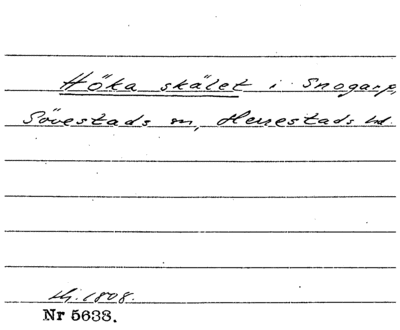 Höka skälet i Snogarp,
Sövestads sn, Herrestads hd.
Nr 5633.